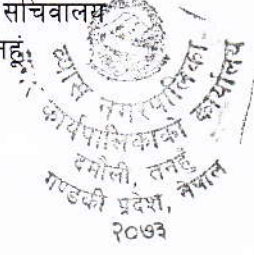 सचिवालय
व्यास नगरपालिका
कार्यपालिकाको कार्यालय
दमौली, तनहुँ
गण्डकी प्रदेश, नेपाल
२०७३